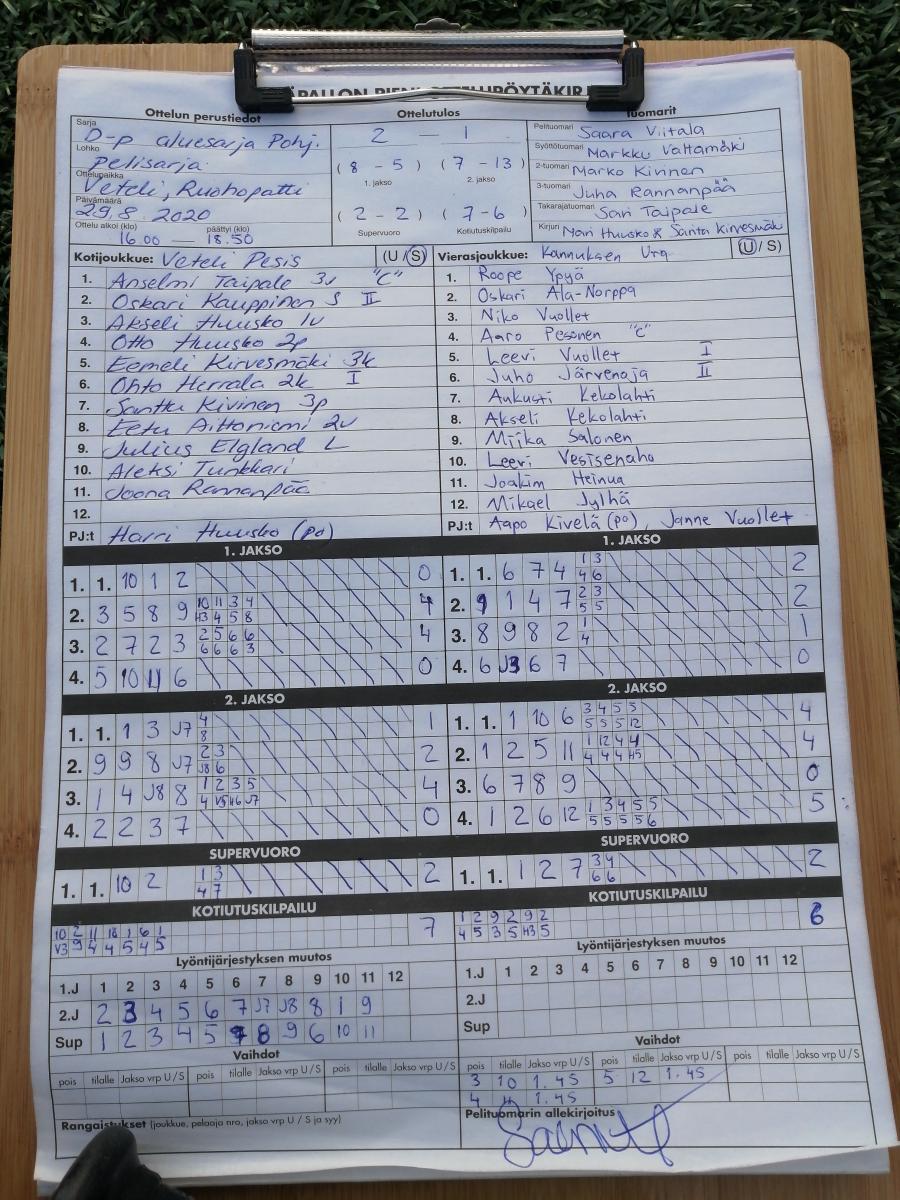 Ottelun perustiedot
Sarja
D-p aluesarja Pohj.
Lohko
Pelisarja
Ottelupaikka
Veteli, Ruohopatti
Päivämäärä
29.8.2020
Ottelu alkoi (klo) päättyi (klo)
16.00 — 18.50
Ottelutulos
2 — 1
(8 - 5) (7 - 13)
1. jakso 2. jakso
(2 - 2) (7 - 6)
Supervuoro Kotiutuskilpailu
Tuomarit
Pelituomari Saara Viitala
Syöttötuomari Markku Valtamäki
2-tuomari Marko Kivinen
3-tuomari Juha Rannanpää
Takarajatuomari Sari Taipale
Kirjuri Mari Huusko & Santa Kirvesmäki
Kotijoukkue: Veteli Pesis (U/S)
1. Anselmi Taipale 3v "C"
2. Oskari Kauppinen S II
3. Akseli Huusko 1v
4. Otto Huusko 2p
5. Eemeli Kirvesmäki 3k
6. Ohto Herrala 2k I
7. Santtu Kivinen 3p
8. Eetu Aittoniemi 2v
9. Julius Elgland L
10. Aleksi Tunkkari
11. Joona Rannanpää
12.
PJ:t Harri Huusko (po)
Vierasjoukkue: Kannuksen Ura (U/S)
1. Roope Ypyä
2. Oskari Ala-Norppa
3. Niko Vuollet
4. Aaro Pesonen "C"
5. Leevi Vuollet I
6. Juho Järvenoja II
7. Aukusti Kekolahti
8. Akseli Kekolahti
9. Miika Salonen
10. Leevi Vesisenaho
11. Joakim Heinua
12. Mikael Jylhä
PJ:t Aapo Kivelä (po), Janne Vuollet
1. JAKSO
1. 1. 10 1 2 0
2. 3 5 8 9 10 11 3 4 4
H3 4 5 8
3. 2 7 2 3 2 5 6 6 4
6 6 6 3
4. 5 10 11 6 0
1. JAKSO
1. 1. 6 7 4 1 3 2
4 6
2. 9 1 4 7 2 3 2
5 5
3. 8 9 8 2 1 1
4
4. 6 J3 6 7 0
2. JAKSO
1. 1. 1 3 J7 4 1
8
2. 9 9 8 J7 2 3 2
J8 6
3. 1 4 J8 8 1 2 3 5 4
4 V5 H6 J7
4. 2 2 3 7 0
2. JAKSO
1. 1. 1 10 6 3 4 5 5 4
5 5 5 12
2. 1 2 5 11 1 12 4 4 4
4 4 4 H5
3. 6 7 8 9 0
4. 1 2 6 12 1 3 4 5 5 5
5 5 5 5 6
SUPERVUORO
1. 1. 10 2 1 3 2
4 7
SUPERVUORO
1. 1. 1 2 7 3 4 2
6 6
KOTIUTUSKILPAILU
10 2 11 10 1 6 1 7
V3 9 4 4 5 4 5
KOTIUTUSKILPAILU
1 2 9 2 9 2 6
4 5 3 5 H3 5
Lyöntijärjestyksen muutos
1.J 1 2 3 4 5 6 7 8 9 10 11 12
2.J 2 3 4 5 6 7 J7 J8 8 1 9
Sup 1 2 3 4 5 7 8 9 6 10 11
Lyöntijärjestyksen muutos
1.J 1 2 3 4 5 6 7 8 9 10 11 12
2.J
Sup
Vaihdot
pois tilalle Jakso vrp U/S pois tilalle Jakso vrp U/S pois tilalle Jakso vrp U/S
Vaihdot
pois tilalle Jakso vrp U/S pois tilalle Jakso vrp U/S pois tilalle Jakso vrp U/S
3 10 1.4S 5 12 1.4S
4 11 1.4S
Rangaistukset (joukkue, pelaaja nro, jakso vrp U / S ja syy)
Pelituomarin allekirjoitus